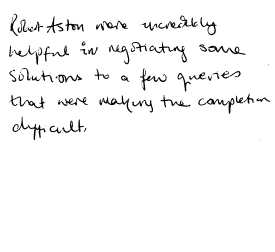 Robert Aston were incredibly
helpful in negotiating some
solutions to a few queries
that were making the completion
difficult.